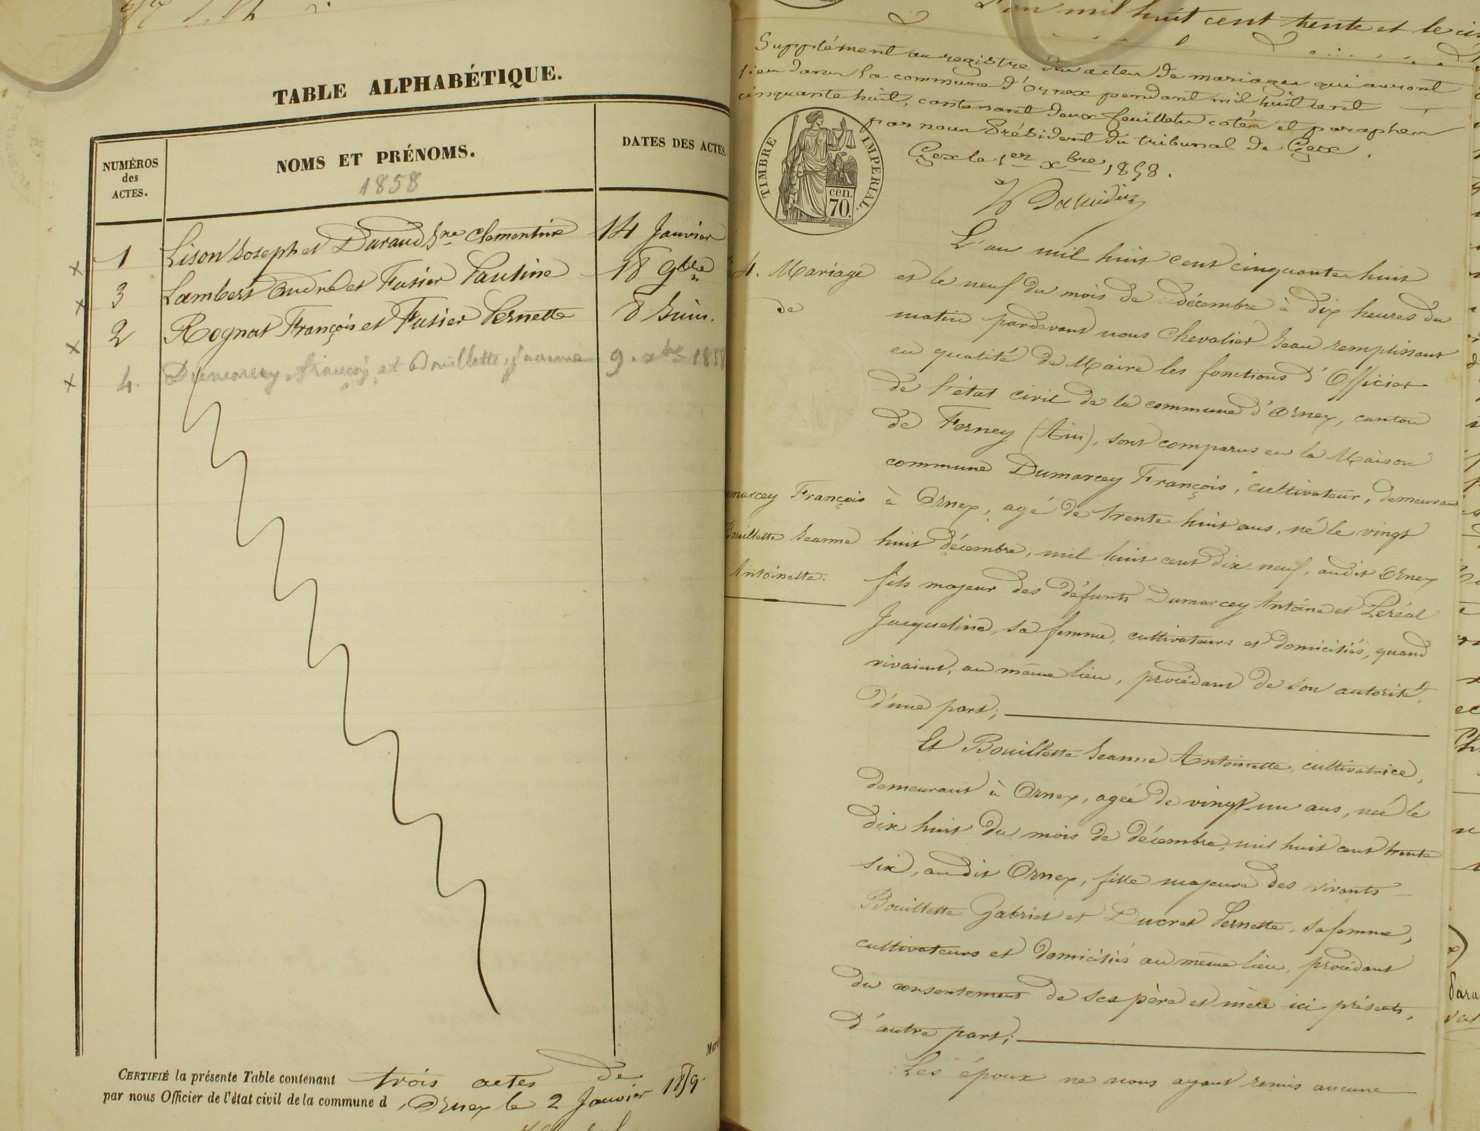 TABLE ALPHABÉTIQUE.
NUMÉROS des ACTES.
NOMS ET PRÉNOMS.
1858
DATES DES ACTES
1 Lison Joseph et Duraud Jne Clementine 14 Janvier
3 Lambert André et Fusier Pauline 18 9bre
2 Rognat François et Fusier Pernette 8 Juin.
4. Dumarcey François et Bouillette Jeanne 9. xbre 1858
CERTIFIÉ la présente Table contenant trois actes de
par nous Officier de l'état civil de la commune d'Ornex le 2 Janvier 1859.
L'an mil huit cent trente et le
Supplément au registre des actes de mariages qui auront
lieu dans la commune d'Ornex pendant mil huit cent
cinquante huit, contenant deux feuillets cotés et paraphés
par nous Président du tribunal de Gex.
Gex le 1er xbre 1858.
TIMBRE IMPÉRIAL
cen. 70.
L'an mil huit cent cinquante huit
4. Mariage
de
et le neuf du mois de décembre à dix heures du
matin pardevant nous Chevalier Jean remplissant
en qualité de Maire les fonctions d'Officier
de l'état civil de la commune d'Ornex, canton
de Ferney (Ain), sont comparus en la Maison
commune Dumarcey François, cultivateur, demeurant
marcey François
à Ornex, agé de trente huit ans, né le vingt
Bouillette Jeanne
huit décembre, mil huit cent dix neuf, audit Ornex
Antoinette.
fils majeur des défunts Dumarcey Antoine et Péréal
Jacqueline, sa femme, cultivateurs et domiciliés, quand
vivaient, au même lieu, procédant de son autorité
d'une part;
Et Bouillette Jeanne Antoinette, cultivatrice,
demeurant à Ornex, agée de vingt un ans, née le
dix huit du mois de décembre, mil huit cent trente
six, audit Ornex, fille majeure des vivants
Bouillette Gabriel et Ducret Pernette, sa femme,
cultivateurs et domiciliés au même lieu, procédant
du consentement de ses père et mère ici présents,
d'autre part;
Les époux ne nous ayant remis aucune